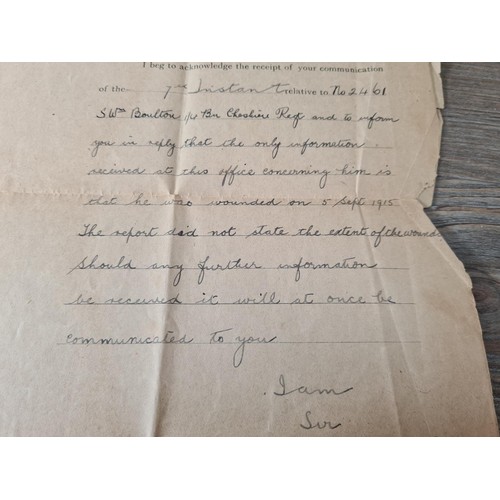 I beg to acknowledge the receipt of your communication
of the 7th Instant relative to No 2461
S Wm Boulton 1/4 Bn Cheshire Regt and to inform
you in reply that the only information
received at this office concerning him is
that he was wounded on 5 Sept 1915
The report did not state the extent of the wounds
Should any further information
be received it will at once be
communicated to you
I am
Sir